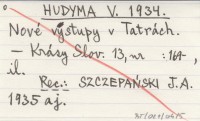 HUDYMA V. 1934.
Nové výstupy v Tatrách.
— Krásy Slov. 13, nr :164,
il.
Rec.: SZCZEPAŃSKI J.A.
1935 aj.